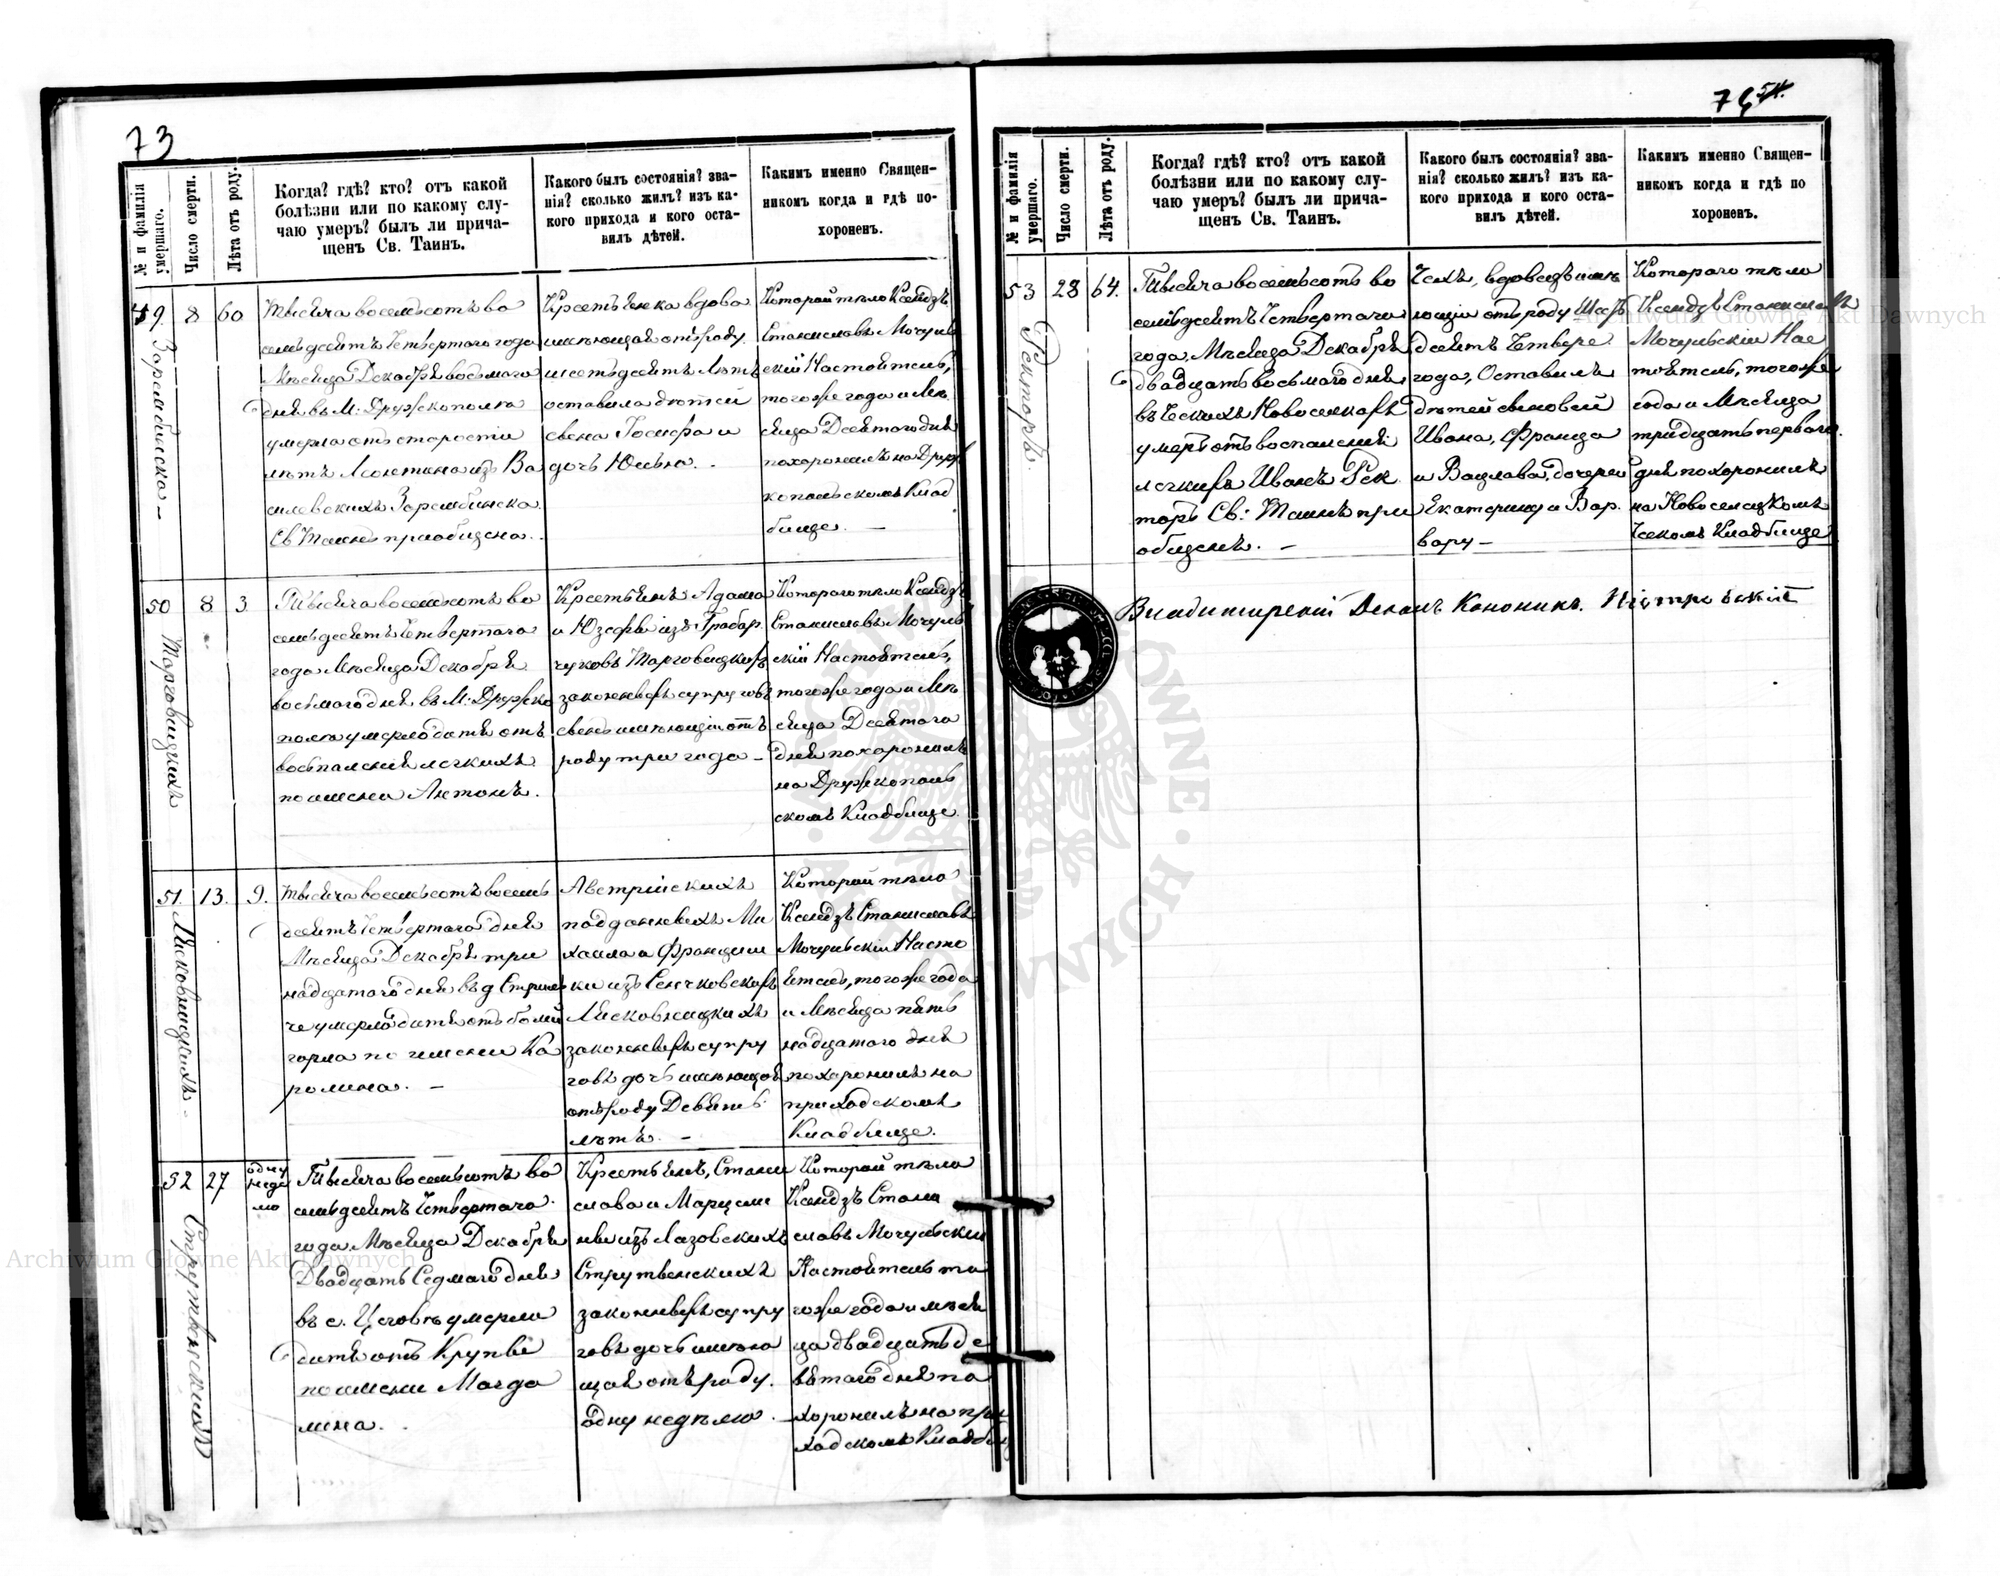 73
№ и фамилія умершаго.
Число смерти.
Лѣта отъ роду.
Когда? гдѣ? кто? отъ какой
болѣзни или по какому слу-
чаю умеръ? былъ ли прича-
щенъ Св. Таинъ.
Какого былъ состоянія? зва-
нія? сколько жилъ? изъ ка-
кого прихода и кого оста-
вилъ дѣтей.
Какимъ именно Священ-
никомъ когда и гдѣ по-
хороненъ.
49.
Зарембинска
8
60
Тысяча восемьсотъ во
семьдесятъ четвертаго года
Мѣсяца Декабря восьмаго
дня въ М: Дружкополѣ
умерла отъ старости
лѣтъ Леонтина изъ Ва
силевскихъ Зарембинска
Св Таинъ приобщена.
Крестьянка вдова
имѣющая отъ роду
шестьдесятъ лѣтъ
оставила дѣтей
сына Іосифа и
дочь Юлію.
Которой тѣло Ксендзъ
Станиславъ Мочуль
скій Настоятель,
того же года и Мѣ
сяца Десятого дня
похоронилъ на Друж
копольскомъ Клад
бище.
50
Торговицкихъ
8
3
Тысяча восемьсотъ во
семьдесятъ четвертаго
года Мѣсяца Декабря
восьмаго дня въ М: Дружко
полѣ умерло дитя отъ
воспаленія легкихъ
по имени Антонъ.
Крестьянъ Адама
и Юзефы изъ Грабар
чуковъ Торговицкихъ
законныхъ супруговъ
сынъ имѣющій отъ
роду три года
Которого тѣло Ксендзъ
Станиславъ Мочуль
скій Настоятель,
того же года и Мѣ
сяца Десятого
дня похоронилъ
на Дружкополь
скомъ Кладбище.
51.
Лисковницкихъ
13.
9.
Тысяча восемьсотъ восемь
десятъ четвертаго дня
Мѣсяца Декабря три
надцатаго дня въ д Стриль
че умерло дитя отъ боли
горла по имени Ка
ролина.
Австрійскихъ
подданныхъ Ми
хаила и Францыш
ки изъ Сенчковскихъ
Лисковницкихъ
законныхъ супру
говъ дочь имѣющая
отъ роду Девять
лѣтъ.
Которой тѣло
Ксендзъ Станиславъ
Мочульскій Насто
ятель, того же года
и Мѣсяца пят
надцатого дня
похоронилъ на
приходскомъ
Кладбище.
52
Струтвинскихъ
27
одну
неде
лю
Тысяча восемьсотъ во
семьдесятъ четвертаго
года Мѣсяца Декабря
Двадцать Седмаго дня
въ с. Цеговѣ умерло
дитя отъ Крупы
по имени Магда
лина.
Крестьянъ, Стани
слава и Марцели
ны изъ Лазовскихъ
Струтвинскихъ
законныхъ супру
говъ дочь имѣю
щая отъ роду
одну недѣлю.
Которой тѣло
Ксендзъ Стани
славъ Мочульскій
Настоятель то
гоже года и мѣся
ца двадцать де
вятаго дня по
хоронилъ на при
ходскомъ Кладби
№ и фамилія умершаго.
Число смерти.
Лѣта отъ роду.
Когда? гдѣ? кто? отъ какой
болѣзни или по какому слу-
чаю умеръ? былъ ли прича-
щенъ Св. Таинъ.
Какого былъ состоянія? зва-
нія? сколько жилъ? изъ ка-
кого прихода и кого оста-
вилъ дѣтей.
Какимъ именно Священ-
никомъ когда и гдѣ по
хороненъ.
53
Ректоръ
28
64.
Тысяча восемьсотъ во
семьдесятъ четвертаго
года, Мѣсяца Декабря
двадцать восьмаго дня
въ Ческихъ Новоселкахъ
умеръ отъ воспаленія
легкихъ Иванъ Рек
торъ Св: Таинъ при
общенъ.
Чехъ, вдовецъ имѣ
ющій отъ роду Шесть
десятъ Четыре
года, Оставилъ
дѣтей сыновей
Ивана, Франца
и Вацлава, дочерей
Екатерину и Вар
вару
Которого тѣло
Ксендзъ Станиславъ
Мочульскій Нас
тоятель, того же
года и Мѣсяца
тридцать первого
дня похоронилъ
на Новоселецкомъ
Ческомъ Кладбище
Владимірскій Деканъ Каноникъ.
Archiwum Główne Akt Dawnych
Archiwum Główne Akt Dawnych